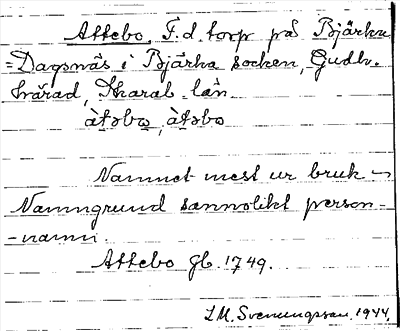 Attebo, F. d. torp på Bjärka
=Dagsnäs i Bjärka socken, Gudh.
härad, Skarab. län
àtəbo, àtəbo
Namnet mest ur bruk
Namngrund sannolikt person-
-namn.
Attebo Gb. 1749.
L M. Svenungsson. 1944.